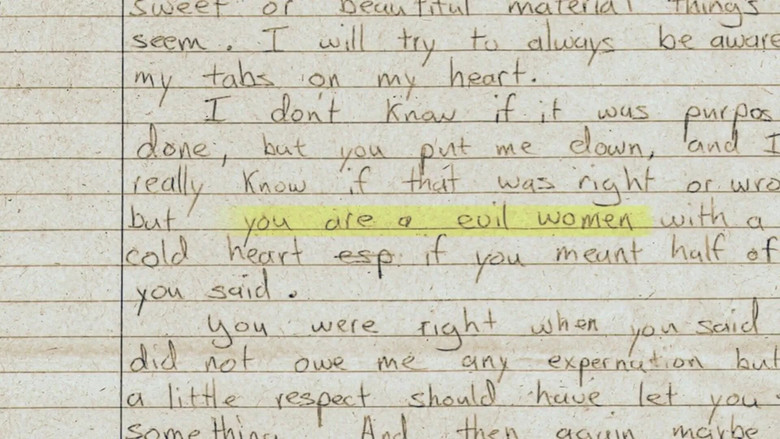 sweet or beautiful material things
seem. I will try to always be aware
my tabs on my heart.
I don't know if it was purpos
done, but you put me down, and I
really know if that was right or wro
but you are a evil women with a
cold heart esp if you meant half of
you said.
You were right when you said
did not owe me any expernation but
a little respect should have let you
something. And then again maybe